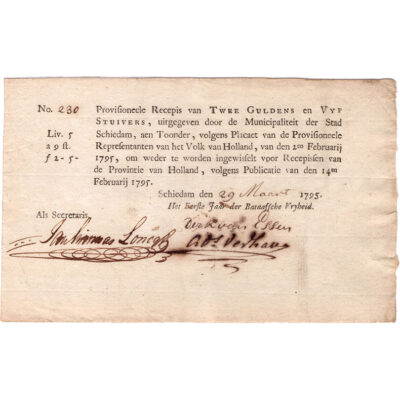 No. 230 Provisioneele Recepis van Twee Guldens en Vyf
Stuivers, uitgegeven door de Municipaliteit der Stad
Liv. 5 Schiedam, aen Toonder, volgens Placaet van de Provisioneele
a 9 st. Representanten van het Volk van Holland, van den 2den Februarij
f 2-5- 1795, om weder te worden ingewisselt voor Recepissen van
de Provintie van Holland, volgens Publicatie van den 14den
Februarij 1795.
Schiedam den 29 Maart 1795.
Het Eerste Jaar der Bataafsche Vryheid.
Als Secretaris,
van Essen